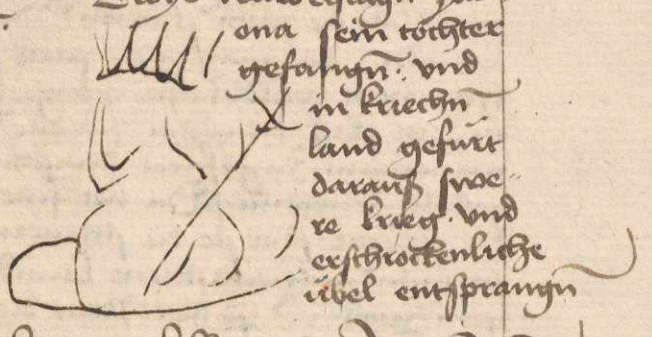 ona sein tochter
gefangn̄. vnd
in kriechn̄
land gefürt
darauß swe-
re krieg. vnd
erschrockenliche
übel entsprangn̄